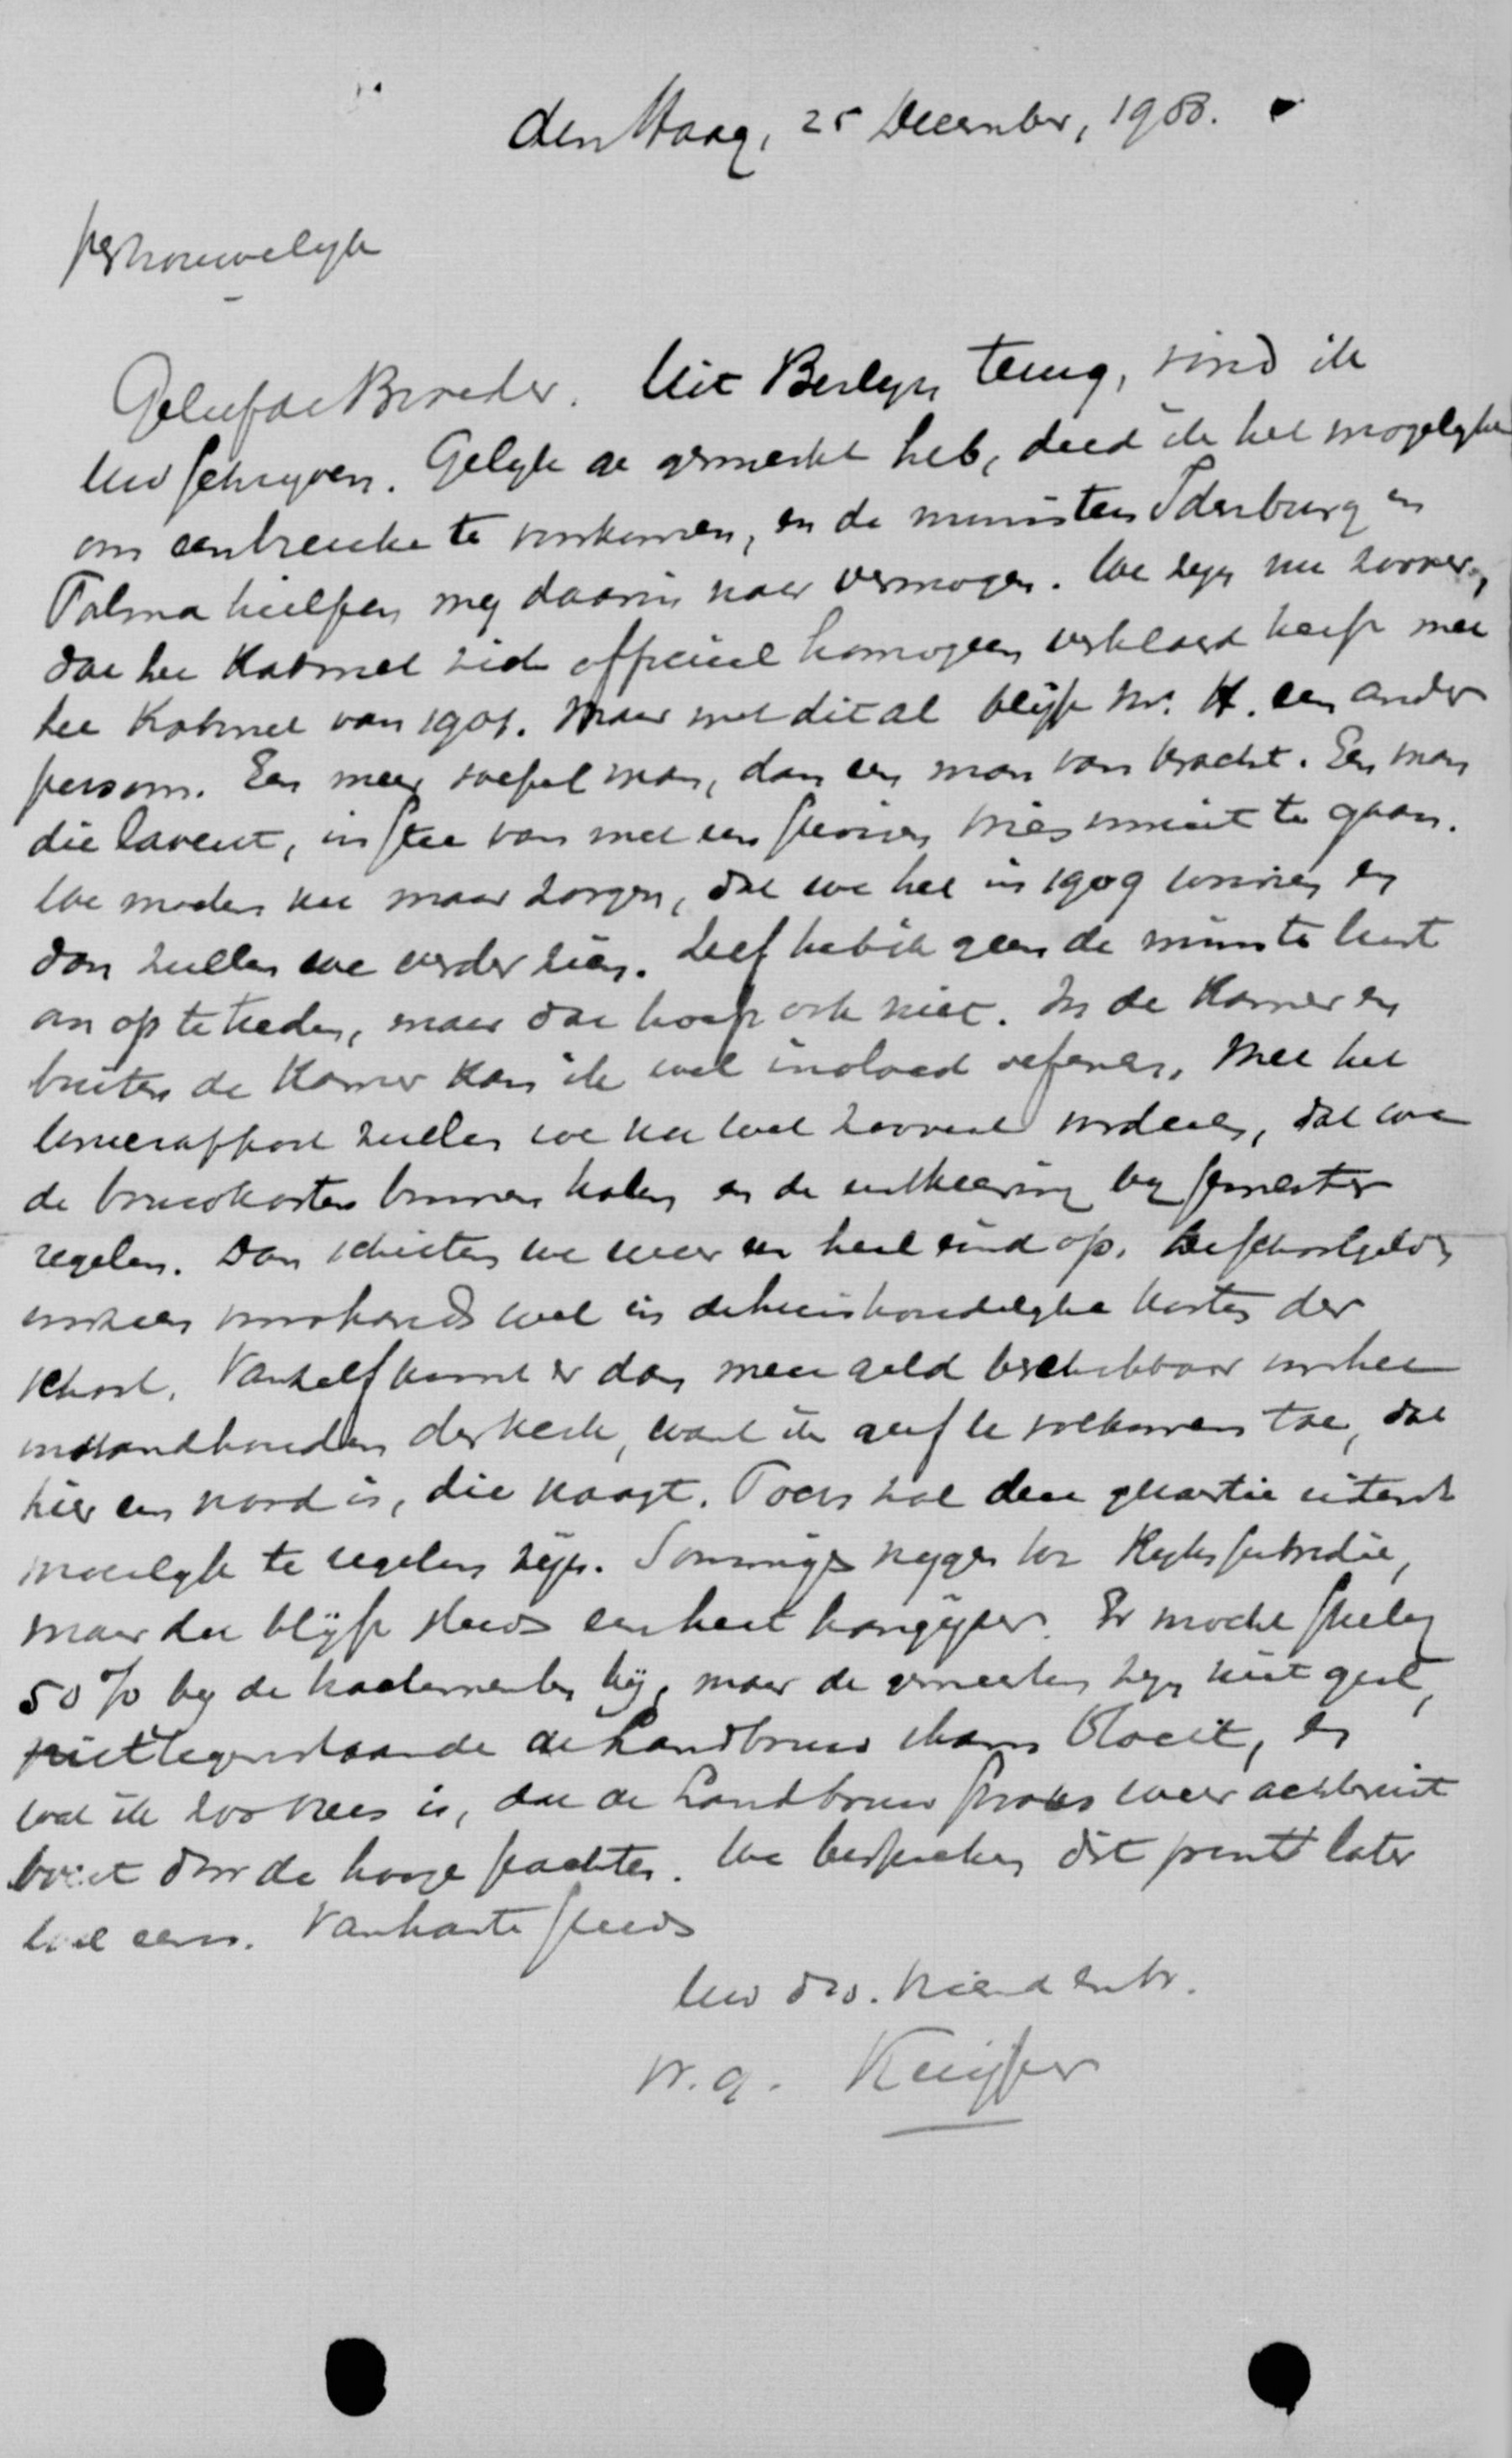 den Haag, 25 December, 1908.
vertrouwelyk
Geliefde Broeder. Uit Berlyn terug, vind ik
Uw schryven. Gelyk ge gemerkt heb, deed ik het mogelyke
om een breuke te voorkomen, en de ministers Idenburg en
Talma hielpen my daarin naar vermogen. We zyn nu zoover,
dat het Kabinet zich officieel homogeen verklaard heeft met
het Kabinet van 1901. Maar met dit al blijft Mr. H. een ander
persoon. Een meer soepel man, dan een man van kracht. Een man
die laveert, in stee van met een stevigen bries vooruit te gaan.
We moeten nu maar zorgen, dat we het in 1909 winnen en
dan zullen we verder zien. Zelf heb ik geen de minste lust
om op te treden, maar dat hoeft ook niet. In de Kamer en
buiten de Kamer kan ik wel invloed oefenen. Met het
zullen we nu wel zooveel vorderen, dat we
de bouwkosten binnen halen en de uitkeering by semester
regelen. Dan schieten we weer een heel eind op. De schoolgelden
voorzien voorshands wel in de huishoudelyke kosten der
school. Vanzelf komt er dan meer geld beschikbaar voor het
instandhouden der kerk, want ik geef U volkomen toe, dat
hier een nood is, die knaagt. Toch zal deze quaestie uiterst
moeilyk te regelen zyn. Sommigen neygen tot Ryks subsidie,
maar dit blijft steeds een heet hangijzer. Er mocht stellig
50% by de tractementen bij, maar de gemeenten zyn niet gul,
niettegenstaande de Landbouw thans bloeit, en
wat ik zoo vrees is, dat de Landbouw straks weer achteruit
boert door de hooge pachten. We bespreken dit punt later
wel eens. Van harte steeds
Uw dw. vriend en br.
w.g. Kuijper